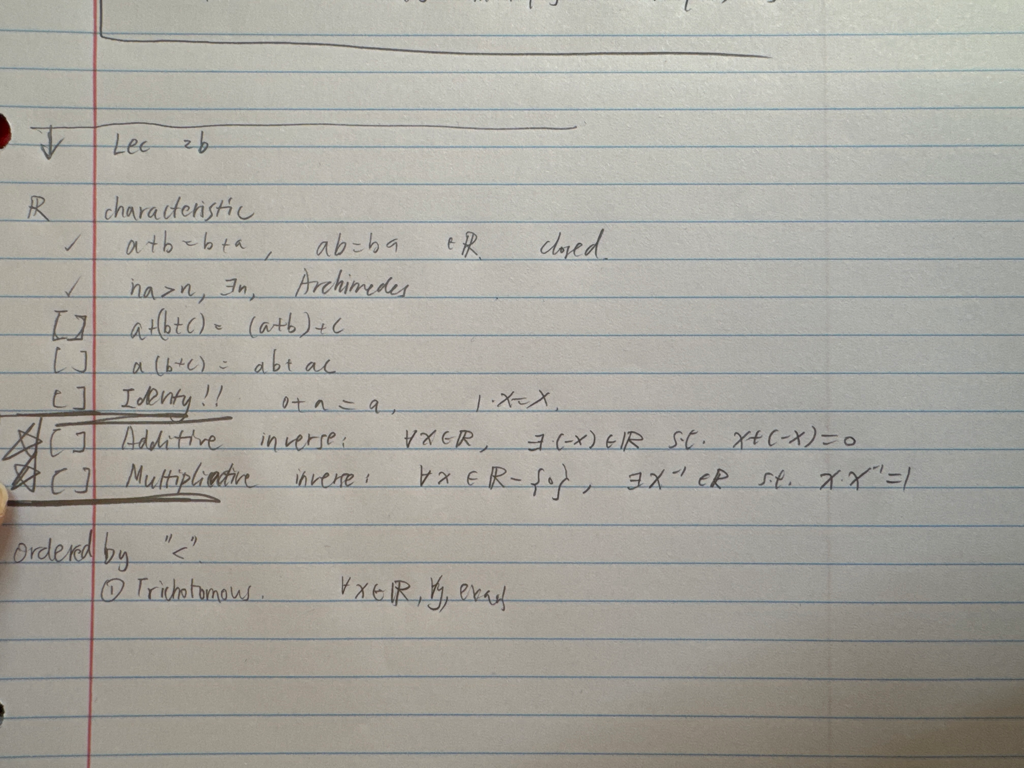 ↓ Lec 2b
ℝ characteristic
✓ a+b=b+a, ab=ba ∈ℝ closed.
✓ na>n, ∃n, Archimedes
[ ] a+(b+c)= (a+b)+c
[ ] a(b+c) = ab+ac
[ ] Identy!! 0+a=a, 1·x=x.
☆ [ ] Additive inverse: ∀x∈ℝ, ∃(-x)∈ℝ s.t. x+(-x)=0
☆ [ ] Multiplicative inverse: ∀x∈ℝ-{0}, ∃x⁻¹∈ℝ s.t. x·x⁻¹=1
ordered by "<"
① Trichotomous. ∀x∈ℝ, ∀y,